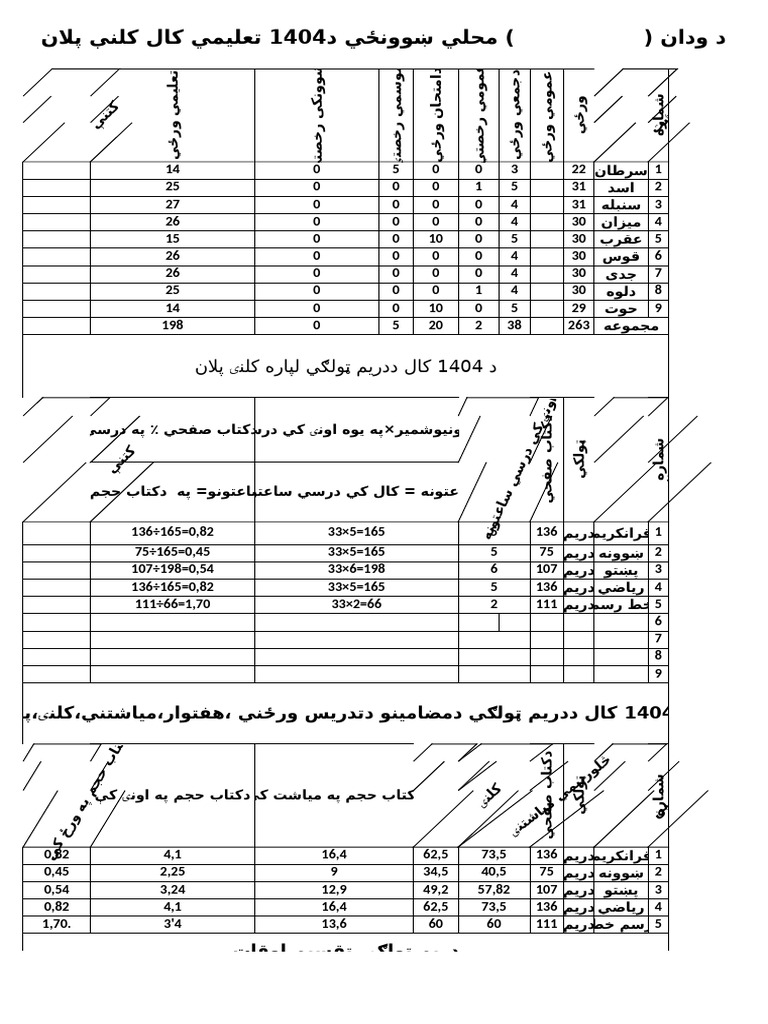 د ودان (                    ) محلي ښوونځي د1404 تعلیمي کال کلني پلان
شماره ورځي عمومي ورځي دجمعي ورځي عمومي رخصتي دامتحان ورځي موسمي رخصتي تعلیمي ورځي کتني
1 سرطان 22 3 0 0 5 0 14
2 اسد 31 5 1 0 0 0 25
3 سنبله 31 4 0 0 0 0 27
4 میزان 30 4 0 0 0 0 26
5 عقرب 30 5 0 10 0 0 15
6 قوس 30 4 0 0 0 0 26
7 جدی 30 4 0 0 0 0 26
8 دلوه 30 4 1 0 0 0 25
9 حوت 29 5 0 10 0 0 14
مجموعه 263 38 2 20 5 0 198
د 1404 کال ددریم ټولګي لپاره کلنۍ پلان
شماره ټولګي دکتاب صفحي کي درسي ساعتونه ×په یوه اونۍ کي کتاب صفحي ٪ په درسي کتني
عتونه = کال کي درسي ساعت ساعتونو= په دکتاب حجم
1 قرانکریم دریم 136 33×5=165 136÷165=0,82
2 ښوونه دریم 75 5 33×5=165 75÷165=0,45
3 پښتو دریم 107 6 33×6=198 107÷198=0,54
4 ریاضي دریم 136 5 33×5=165 136÷165=0,82
5 خط رسم دریم 111 2 33×2=66 111÷66=1,70
6
7
8
9
1404 کال ددریم ټولګي دمضامینو دتدریس ورځني ،هفتوار،میاشتني،کلنۍ،
شماره ټولګي دکتاب صفحي څلورنیمي میاشتنۍ کلنۍ کتاب حجم په میاشت کي دکتاب حجم په اونۍ کي کتاب حجم په ورځ کي
1 قرانکریم دریم 136 73,5 62,5 16,4 4,1 0,82
2 ښوونه دریم 75 40,5 34,5 9 2,25 0,45
3 پښتو دریم 107 57,82 49,2 12,9 3,24 0,54
4 ریاضي دریم 136 73,5 62,5 16,4 4,1 0,82
5 رسم خط دریم 111 60 60 13,6 3'4 1,70.